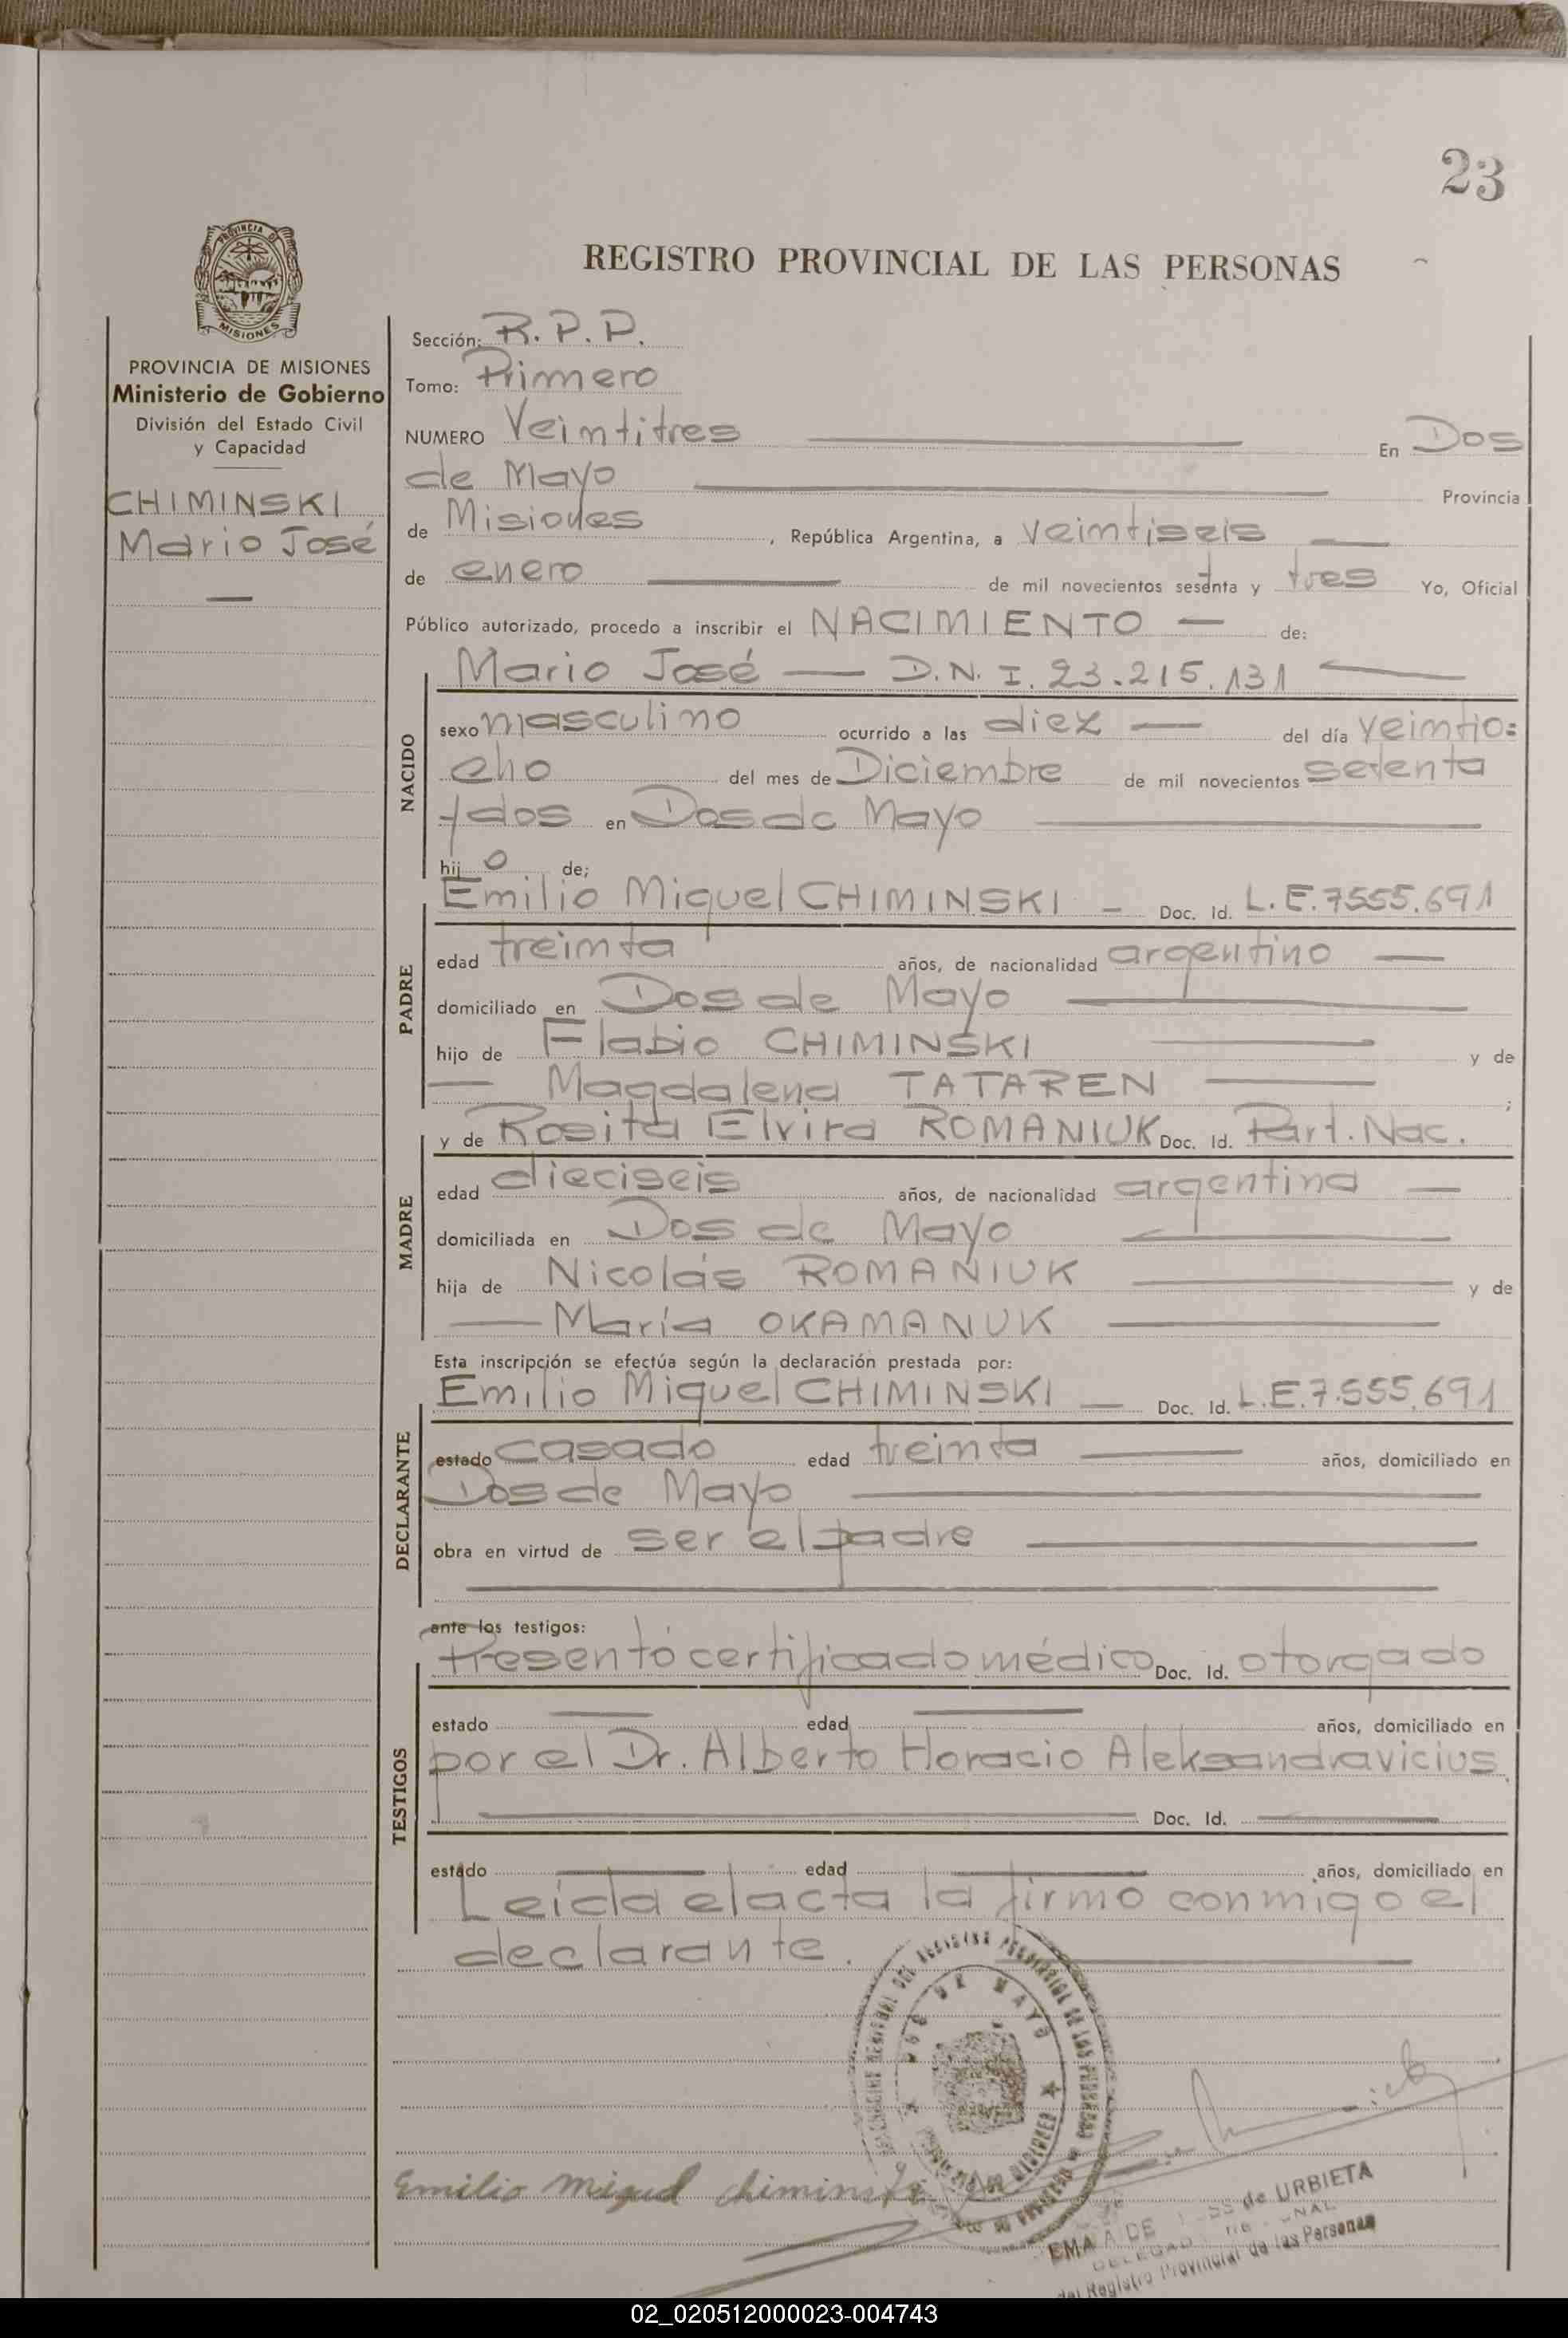 23
REGISTRO PROVINCIAL DE LAS PERSONAS
PROVINCIA DE MISIONES
Ministerio de Gobierno
División del Estado Civil
y Capacidad
CHIMINSKI
Mario José
Sección: R.P.P.
Tomo: Primero
NUMERO Veintitres En Dos
de Mayo Provincia
de Misiones, República Argentina, a veintiseis
de enero de mil novecientos setenta y tres Yo, Oficial
Público autorizado, procedo a inscribir el NACIMIENTO de:
NACIDO
Mario José — D.N.I. 23.215.131
sexo masculino ocurrido a las diez — del día veintio=
cho del mes de Diciembre de mil novecientos setenta
y dos en Dos de Mayo
hijo de;
PADRE
Emilio Miguel CHIMINSKI - Doc. Id. L.E. 7555.691
edad treinta años, de nacionalidad argentino —
domiciliado en Dos de Mayo
hijo de Flabio CHIMINSKI y de
— Magdalena TATAREN ;
MADRE
y de Rosita Elvira ROMANIUK Doc. Id. Part. Nac.
edad dieciseis años, de nacionalidad argentina —
domiciliada en Dos de Mayo
hija de Nicolás ROMANIUK y de
— María OKAMANUK
Esta inscripción se efectúa según la declaración prestada por:
DECLARANTE
Emilio Miguel CHIMINSKI — Doc. Id. L.E. 7.555.691
estado casado edad treinta años, domiciliado en
Dos de Mayo
obra en virtud de ser el padre
ante los testigos:
TESTIGOS
Presentó certificado médico Doc. Id. otorgado
estado edad años, domiciliado en
por el Dr. Alberto Horacio Aleksandravicius
Doc. Id.
estado edad años, domiciliado en
Leída el acta la firmo conmigo el
declarante.
DOS DE MAYO
Emilio Miguel Chiminski
de URBIETA
del Registro Provincial de las Personas
02_020512000023-004743